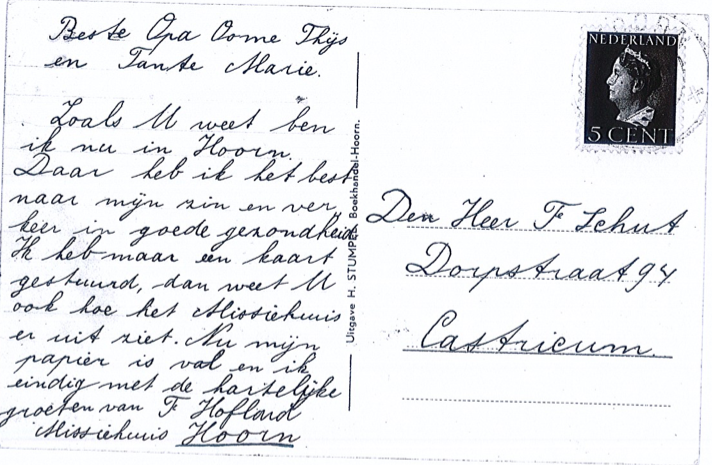 Beste Opa Oome Thijs
en Tante Marie.
Zoals U weet ben
ik nu in Hoorn.
Daar heb ik het best
naar mijn zin en ver,
keer in goede gezondheid
Ik heb maar een kaart
gestuurd, dan weet U
ook hoe het Missiehuis
er uit ziet. Nu mijn
papier is vol en ik
eindig met de hartelijke
groeten van F Hofland
Missiehuis Hoorn
Uitgave H. STUMPEL Boekhandel-Hoorn.
NEDERLAND
5 CENT
Den Heer F Schut
Dorpstraat 94
Castricum.